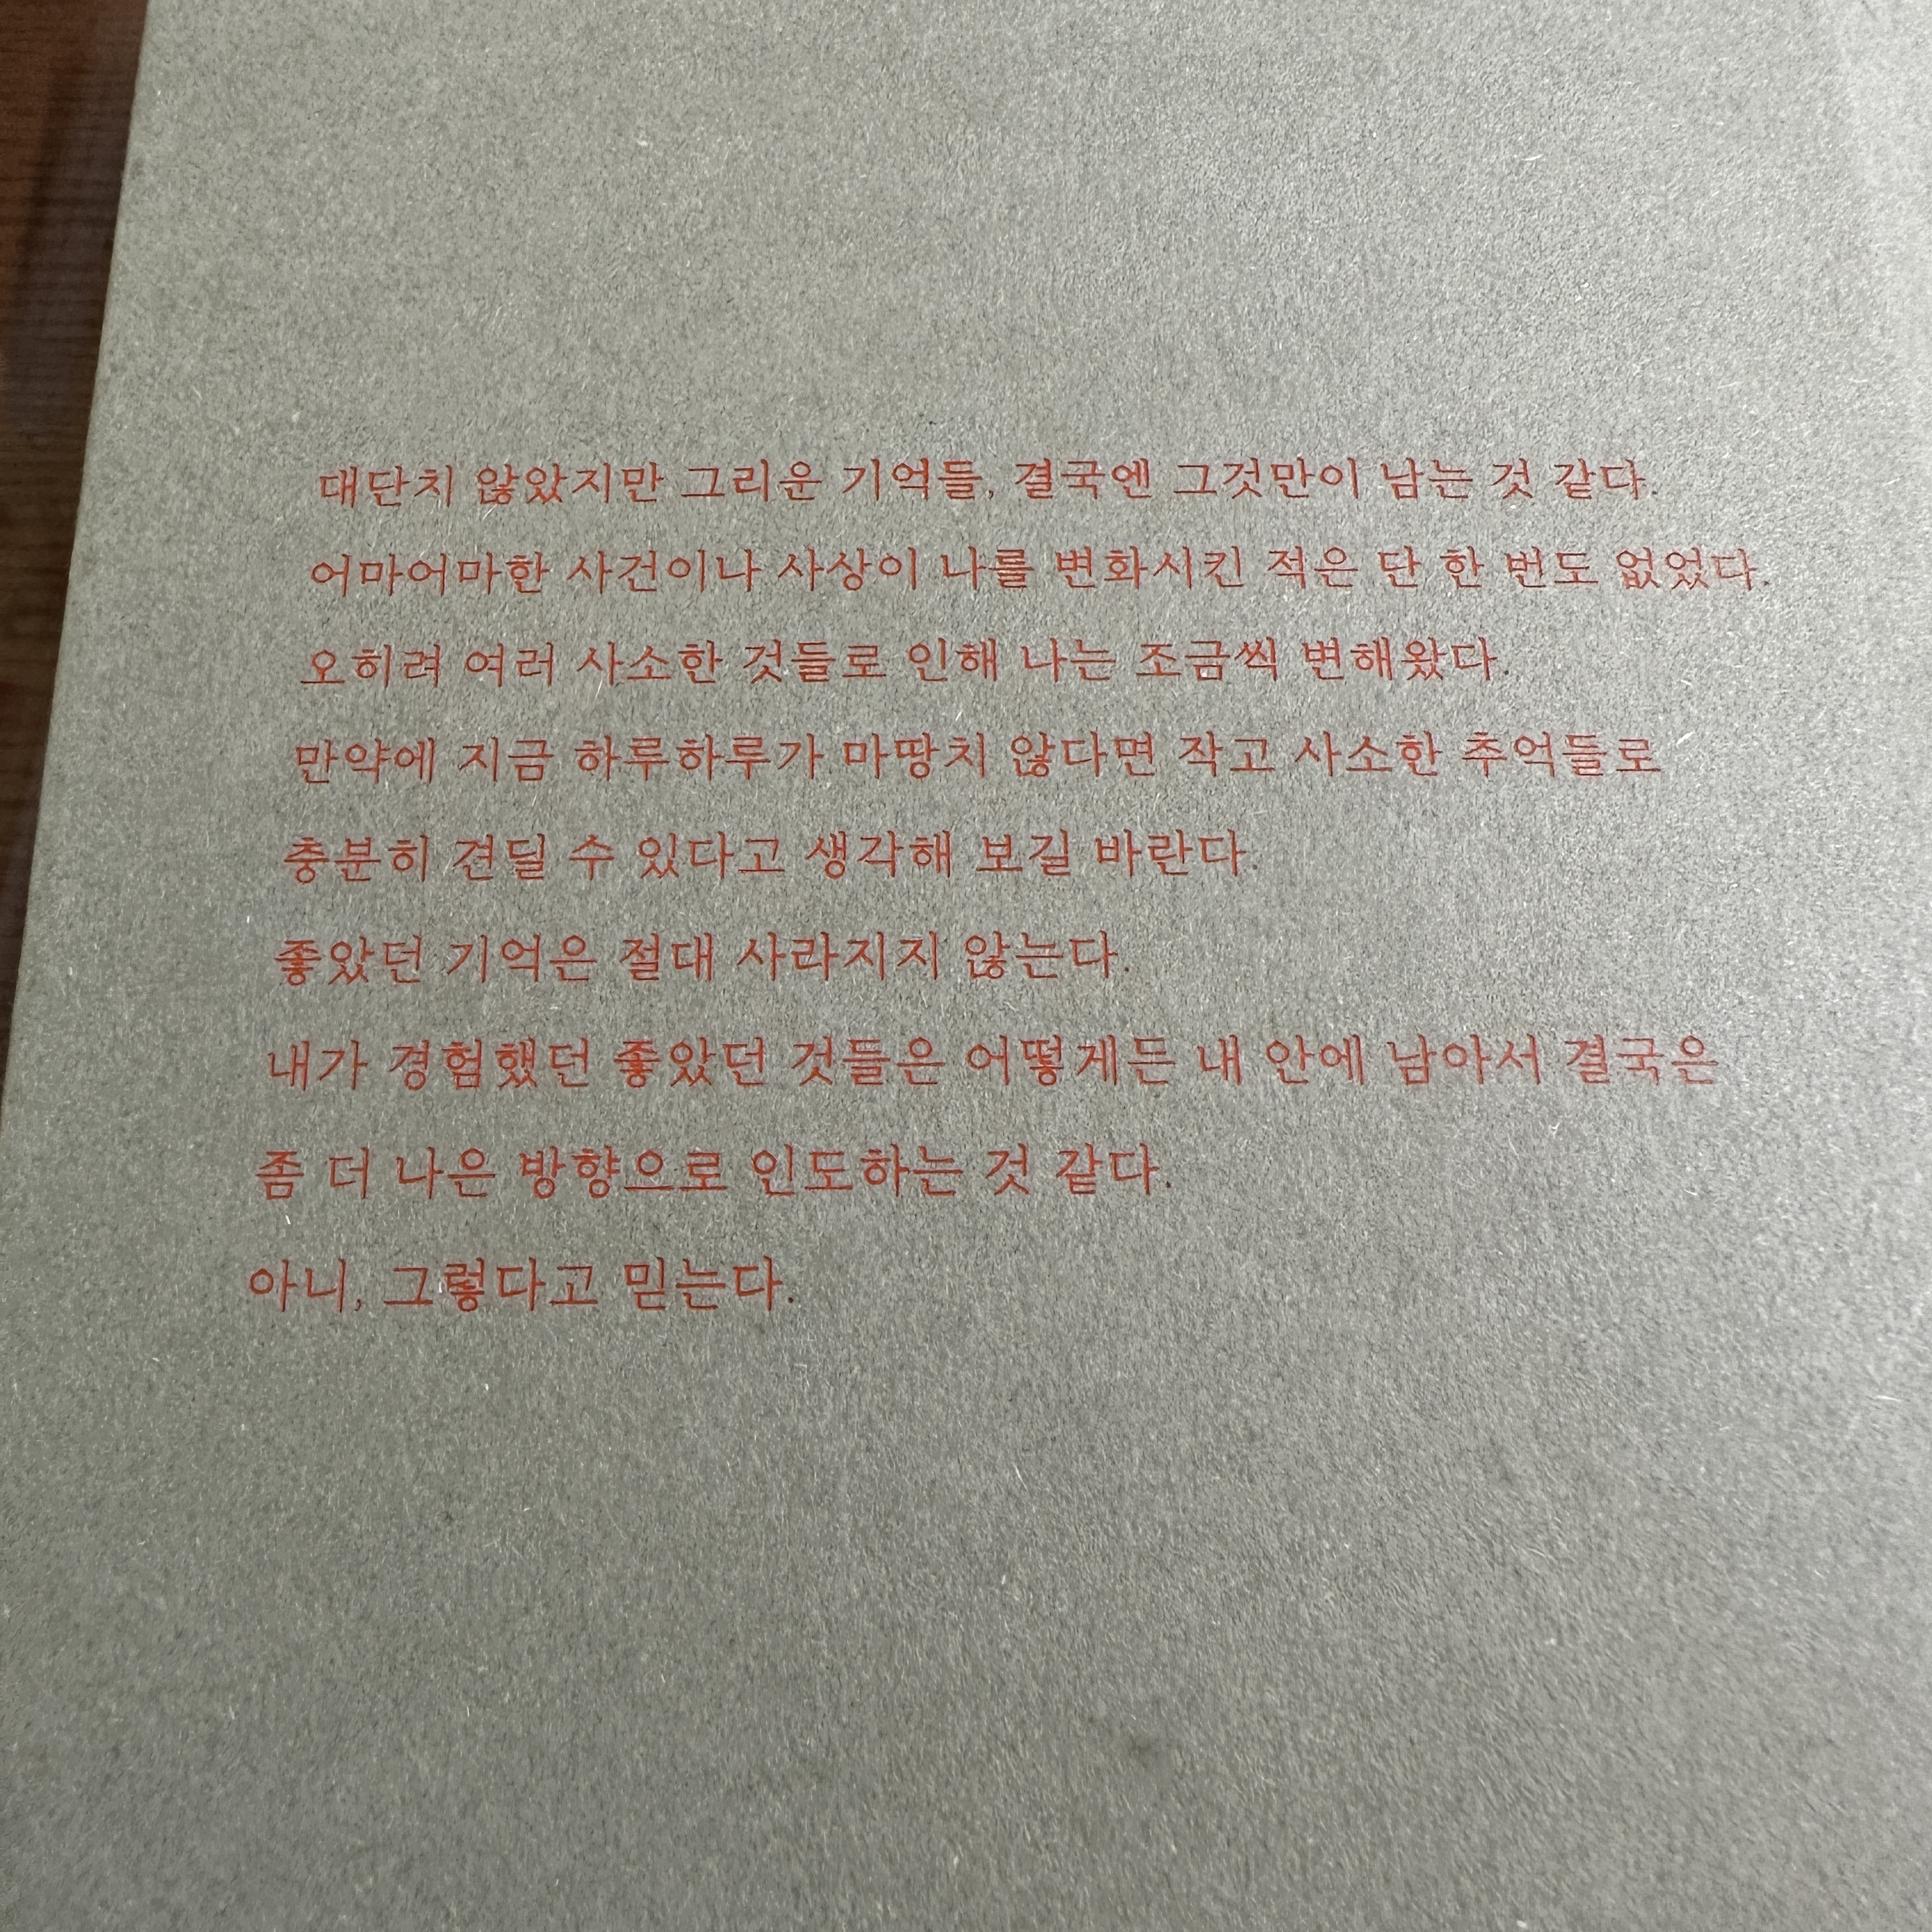 대단치 않았지만 그리운 기억들, 결국엔 그것만이 남는 것 같다.
어마어마한 사건이나 사상이 나를 변화시킨 적은 단 한 번도 없었다.
오히려 여러 사소한 것들로 인해 나는 조금씩 변해왔다.
만약에 지금 하루하루가 마땅치 않다면 작고 사소한 추억들로
충분히 견딜 수 있다고 생각해 보길 바란다.
좋았던 기억은 절대 사라지지 않는다.
내가 경험했던 좋았던 것들은 어떻게든 내 안에 남아서 결국은
좀 더 나은 방향으로 인도하는 것 같다.
아니, 그렇다고 믿는다.